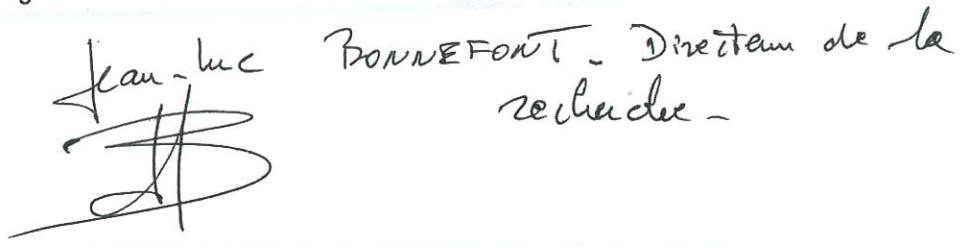 Jean-Luc BONNEFONT - Directeur de la
recherche -